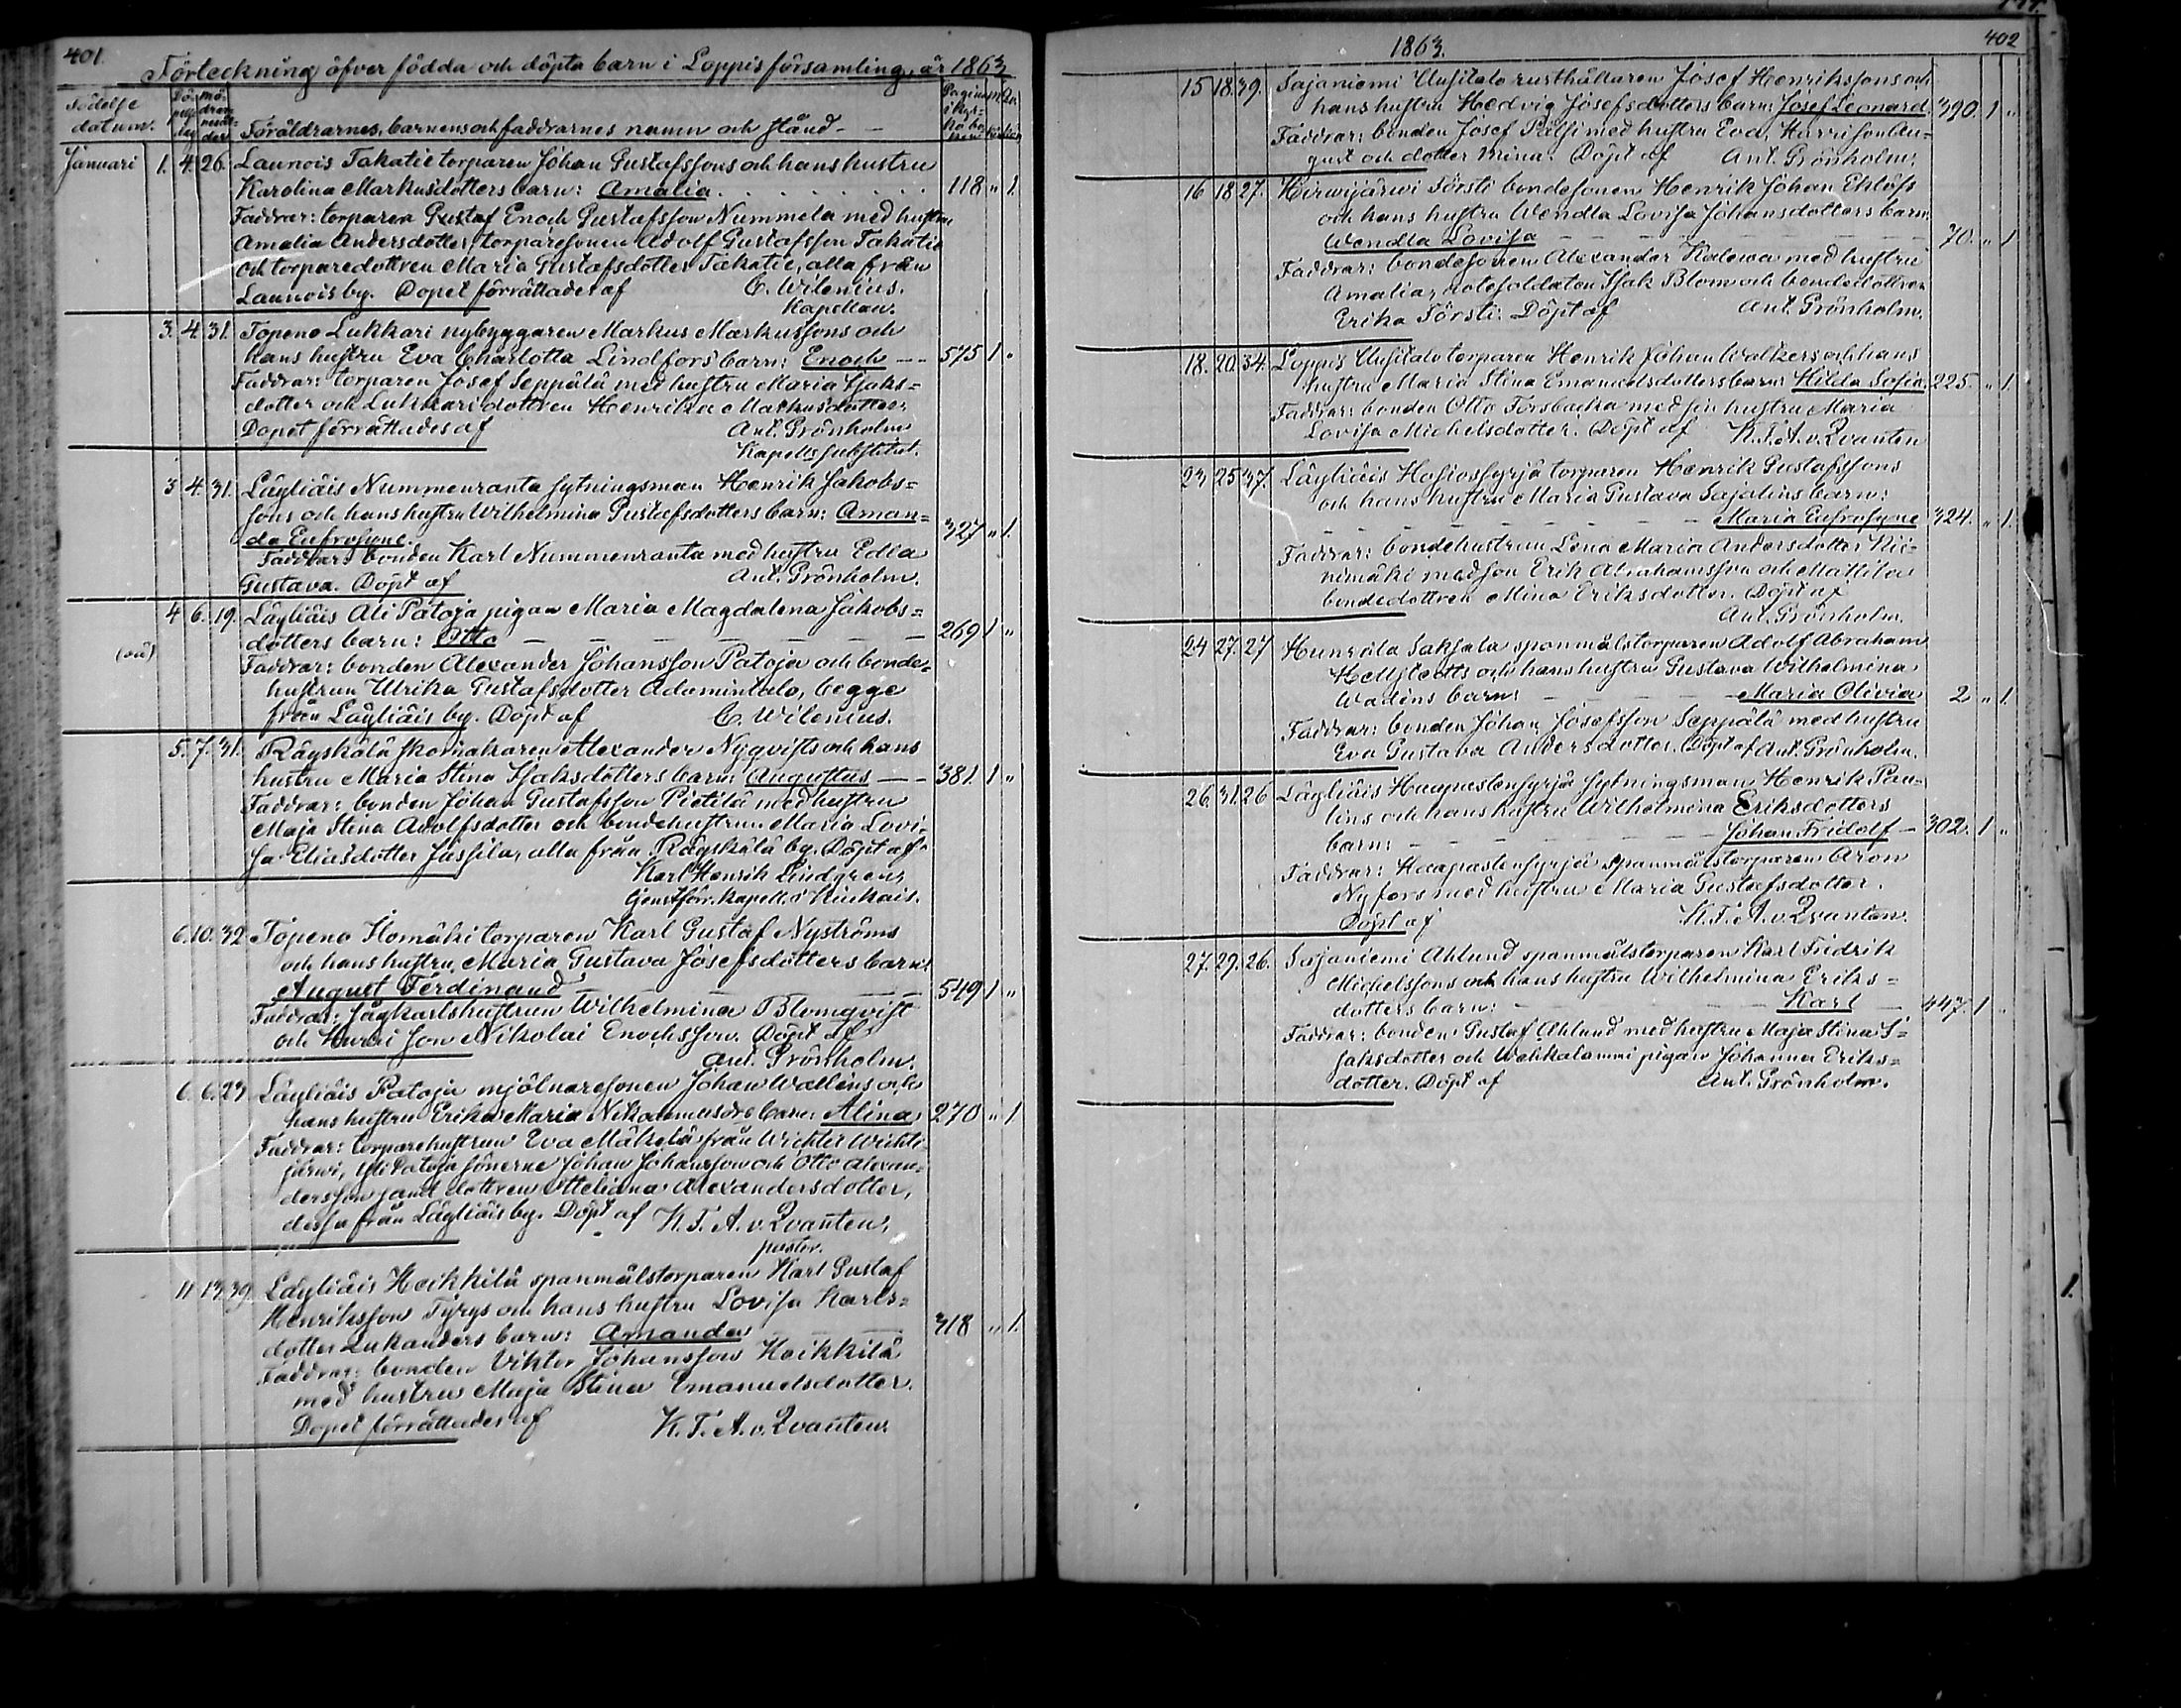 401.
Förteckning öfver födda och döpta barn i Loppis församling, år 1863
Födelse datum.
Föräldrarnes, barnens och faddrarnes namn och stånd
Januari 1. 4. 26. Launois Takatie torparen Johan Gustafssons och hans hustru
Karolina Markusdotters barn: Amalia 118 " 1.
Faddrar: torparen Gustaf Enoch Gustafsson Nummela med hustru
Amalia Andersdotter, torparesonen Adolf Gustafsson Takatie
och torparedottren Maria Gustafsdotter Takatie, alla från
Launois by. Dopet förrättades af C. Wilenius.
Kapellan.
3. 4. 31. Topeno Lukkari nybyggaren Markus Markussons och
hans hustru Eva Charlotta Lindfors barn: Enoch 575 1 "
Faddrar: torparen Josef Seppälä med hustru Maria Isaks=
dotter och Lukkari dottren Henrika Markusdotter.
Dopet förrättades af Ant. Grönholm
Kapells substitut.
3 4. 31. Läyliäis Nummenranta sytningsman Henrik Jakobs=
sons och hans hustru Wilhelmina Gustafsdotters barn: Aman=
da Eufrosyne. 327 " 1.
Faddrar: bonden Karl Nummenranta med hustru Edla
Gustava. Döpt af Ant. Grönholm.
4 6. 19. Läyliäis Ali Patoja pigan Maria Magdalena Jakobs=
dotters barn: Otto 269 1 "
(oä)
Faddrar: bonden Alexander Johansson Patoja och bonde=
hustrun Ulrika Gustafsdotter Adamintalo, begge
från Läyliäis by. Döpt af C. Wilenius.
5. 7. 31. Räyskälä skomakaren Alexander Nyqvists och hans
hustru Maria Stina Isaksdotters barn: Augustus 381. 1 "
Faddrar: bonden Johan Gustafsson Pietilä med hustru
Maja Stina Adolfsdotter och bondehustrun Maria Lovi=
sa Eliasdotter Jussila, alla från Räyskälä by. Döpt af
Karl Henrik Lindgren,
6. 10. 32 Topeno Ilomäki torparen Karl Gustaf Nyströms
och hans hustru Maria Gustava Josefsdotters barn:
August Ferdinand 549 1 "
Faddrar: sågkarlshustrun Wilhelmina Blomqvist
och Hurri son Nikolai Enochsson. Döpt af
Ant. Grönholm.
6. 6. 23 Läyliäis Patoja mjölnaresonen Johan Wallins och
hans hustru Erika Maria barn: Alina 270 " 1
Faddrar: torparehustrun Eva Mäkelä från Wichtis Wichti=
järwi, Yli Patoja sönerne Johan Johansson och Otto Alexan=
dersson samt dottren Otteliana Alexandersdotter,
dessa från Läyliäis by. Döpt af K. F. A. v. Qvanten,
pastor.
11 13. 39 Läyliäis Heikkilä spanmålstorparen Karl Gustaf
Henriksson Tyrys och hans hustru Lovisa Karls=
dotter Lukanders barn: Amanda 318 " 1.
Faddrar: bonden Viktor Johansson Heikkilä
med hustru Maja Stina Emanuelsdotter.
Dopet förrättades af K. F. A. v. Qvanten.
402
1863.
15 18. 39. Sajaniemi Uusitalo rusthållaren Josef Henrikssons och
hans hustru Hedvig Josefsdotters barn: Josef Leonard. 390. 1 "
Faddrar: bonden Josef Pälsi med hustru Eva, Harri son Au=
gust och dotter Mina. Döpt af Ant. Grönholm.
16 18 27. Hirwijärwi Försti bondesonen Henrik Johan Eklöfs
och hans hustru Wendla Lovisa Johansdotters barn
Wendla Lovisa 70. " 1
Faddrar: bondesonen Alexander Kalewa med hustru
Amalia, rotesoldaten Isak Blom och bondedottren
Erika Försti. Döpt af Ant. Grönholm.
18. 20. 34. Loppis Uusitalo torparen Henrik Johan Walkers och hans
hustru Maria Stina Emanuelsdotters barn: Hilda Sofia. 225. " 1
Faddrar: bonden Otto Forsbacka med sin hustru Maria
Lovisa Michelsdotter. Döpt af K. F. A. v. Qvanten
23 25 37. Läyliäis Hosiossyrjä torparen Henrik Gustafssons
och hans hustru Maria Gustava Sajalins barn:
Maria Eufrosyne 324. " 1.
Faddrar: bondehustrun Lena Maria Andersdotter Nii=
nimäki med son Erik Abrahamsson och Mattila
bondedottren Mina Eriksdotter. Döpt af
Ant. Grönholm.
24 27. 27 Hunsala Saksala spanmålstorparen Adolf Abraham
Hellstedts och hans hustru Gustava Wilhelmina
Wadens barn: Maria Olivia 2 " 1.
Faddrar: bonden Johan Josefsson Seppälä med hustru
Eva Gustava Andersdotter. Döpt af Ant. Grönholm.
26. 31. 26 Läyliäis Haapastensyrjä sytningsman Henrik Pau=
lins och hans hustru Wilhelmina Eriksdotters
barn: Johan Fridolf 302. 1 "
Faddrar: Haapastensyrjä spanmålstorparen Aron
Nyfors med hustru Maria Gustafsdotter.
Döpt af K. F. A. v. Qvanten.
27. 29. 26. Sajaniemi Ahlund spanmålstorparen Karl Fridrik
Michelssons och hans hustru Wilhelmina Eriks=
dotters barn: Karl 447. 1 "
Faddrar: bonden Gustaf Ahlund med hustru Maja Stina I=
saksdotter och Wahkalammi pigan Johanna Eriks=
dotter. Döpt af Ant. Grönholm.